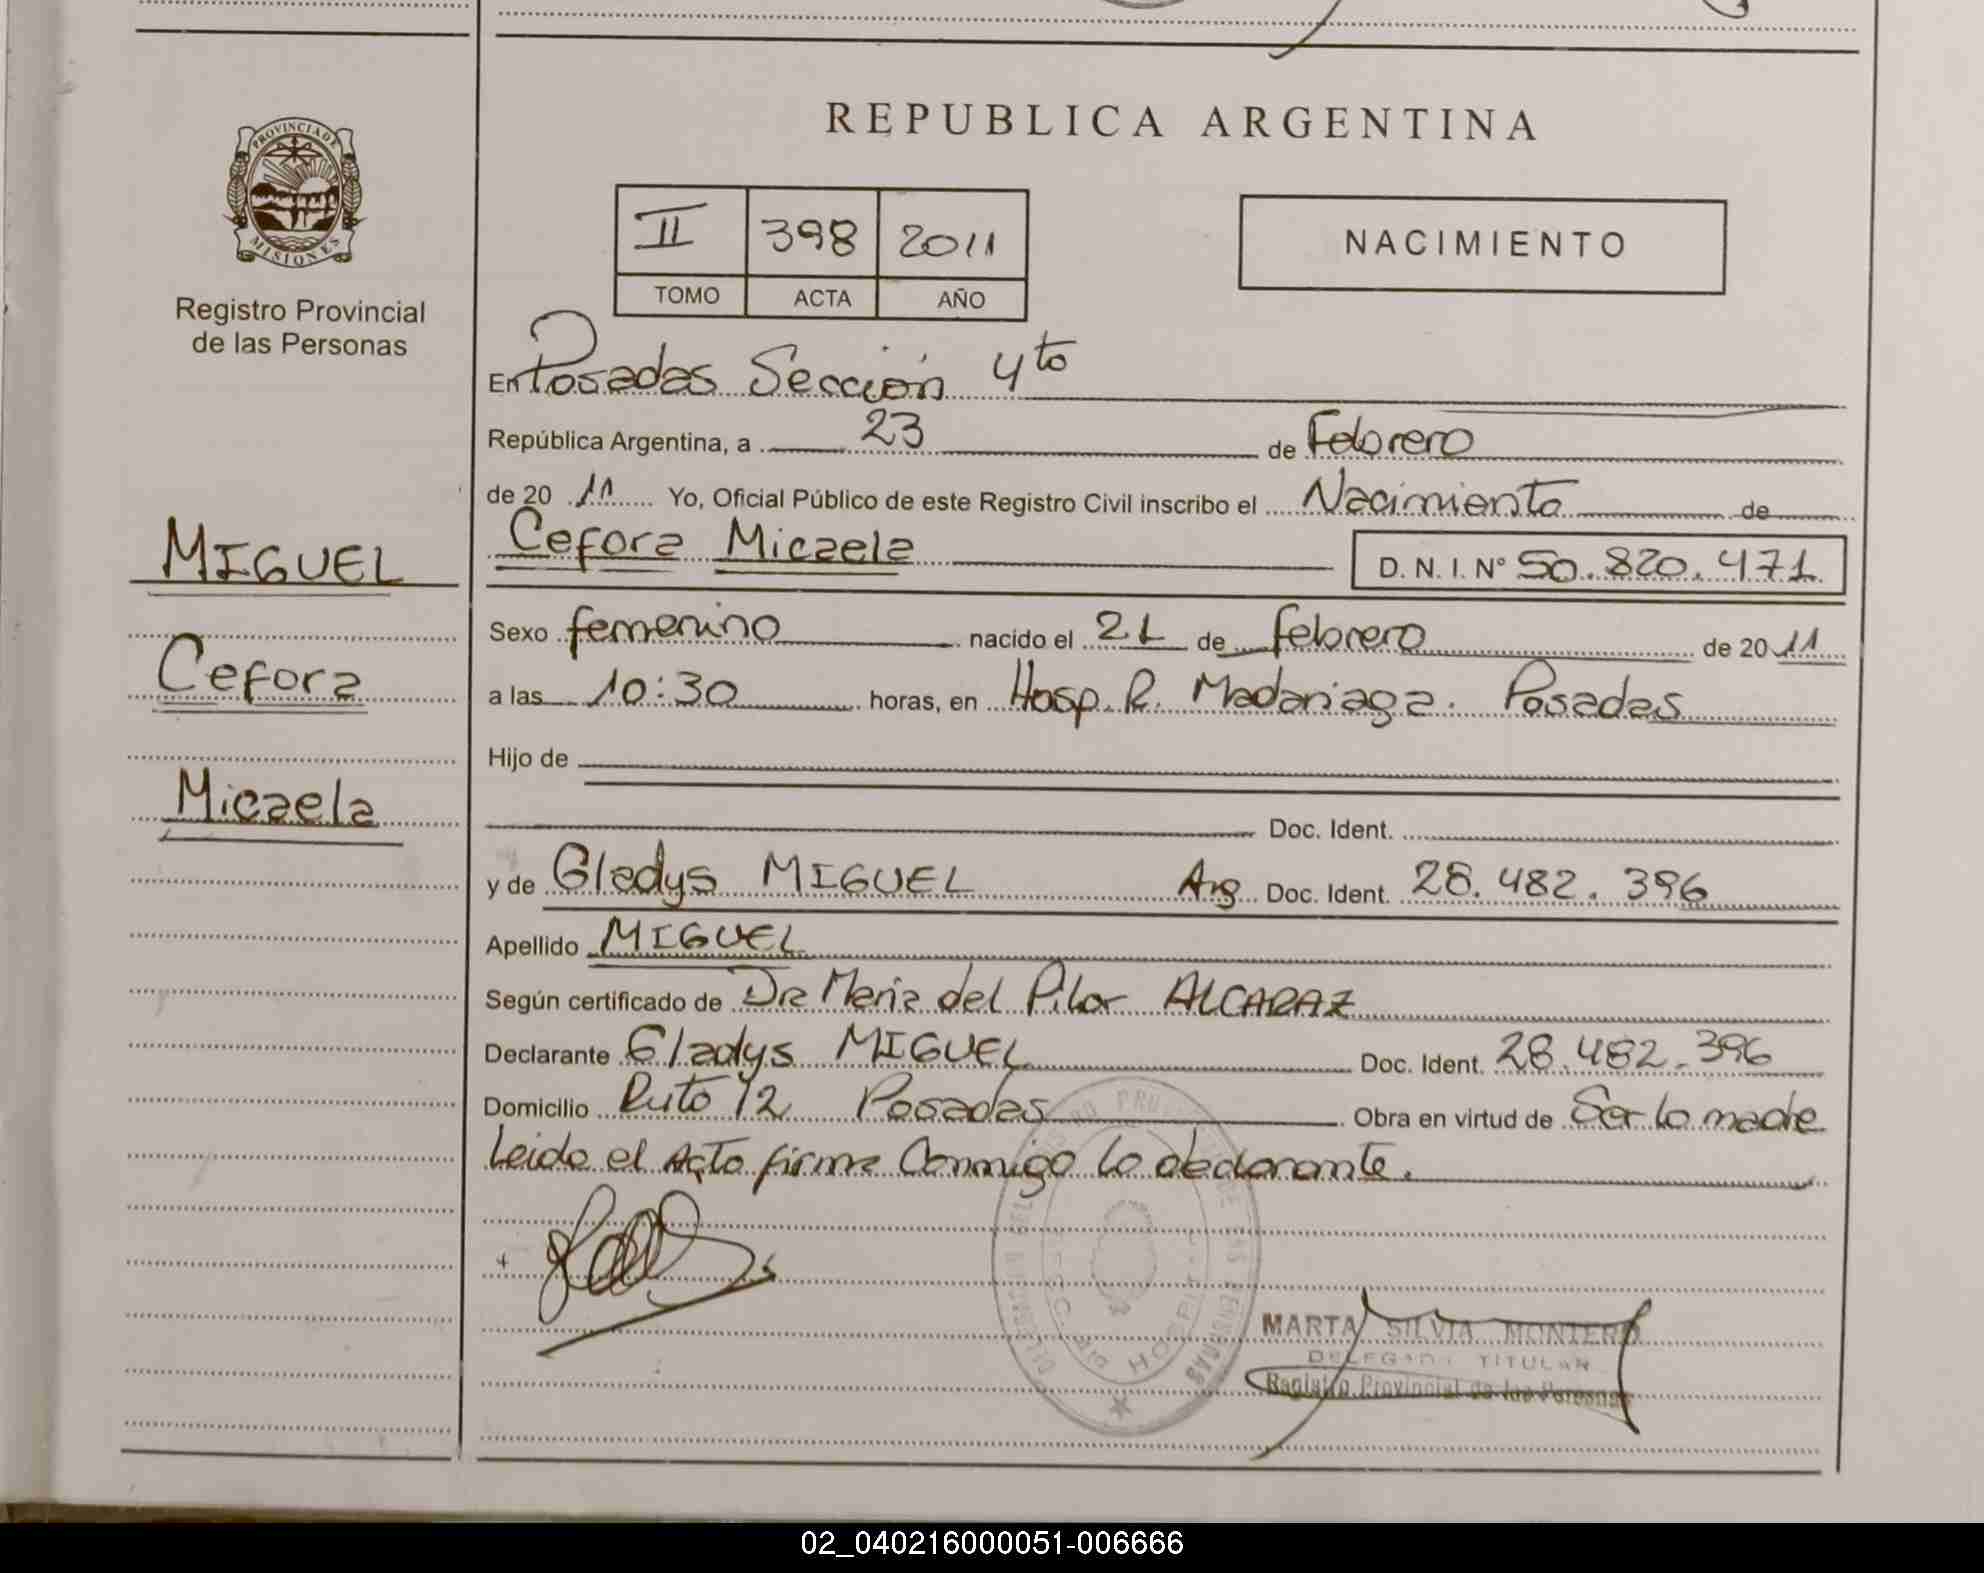 REPUBLICA ARGENTINA
PROVINCIA DE
MISIONES
Registro Provincial
de las Personas
II 398 2011
TOMO ACTA AÑO
NACIMIENTO
En Posadas Sección 4to
República Argentina, a 23 de Febrero
de 20 11 Yo, Oficial Público de este Registro Civil inscribo el Nacimiento de
Cefora Micaela D. N. I. Nº 50.820.471
MIGUEL
Cefora
Micaela
Sexo femenino nacido el 21 de febrero de 20 11
a las 10:30 horas, en Hosp. R. Madariaga. Posadas
Hijo de
Doc. Ident.
y de Gladys MIGUEL Arg Doc. Ident. 28.482.396
Apellido MIGUEL
Según certificado de Dra Maria del Pilar ALCARAZ
Declarante Gladys MIGUEL Doc. Ident. 28.482.396
Domicilio Ruta 12 Posadas Obra en virtud de Ser la madre
Leida el Acta firma Conmigo la declarante.
MARTA SILVIA MONTERO
DELEGADA TITULAR
Registro Provincial de las Personas
02_040216000051-006666